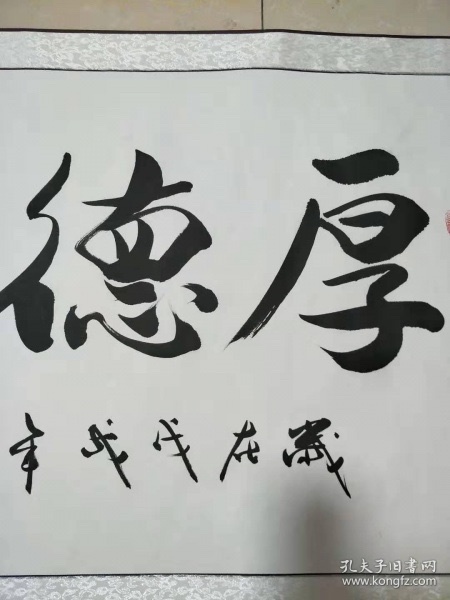 厚德
歲在戊戌年
孔夫子旧书网
www.kongfz.com